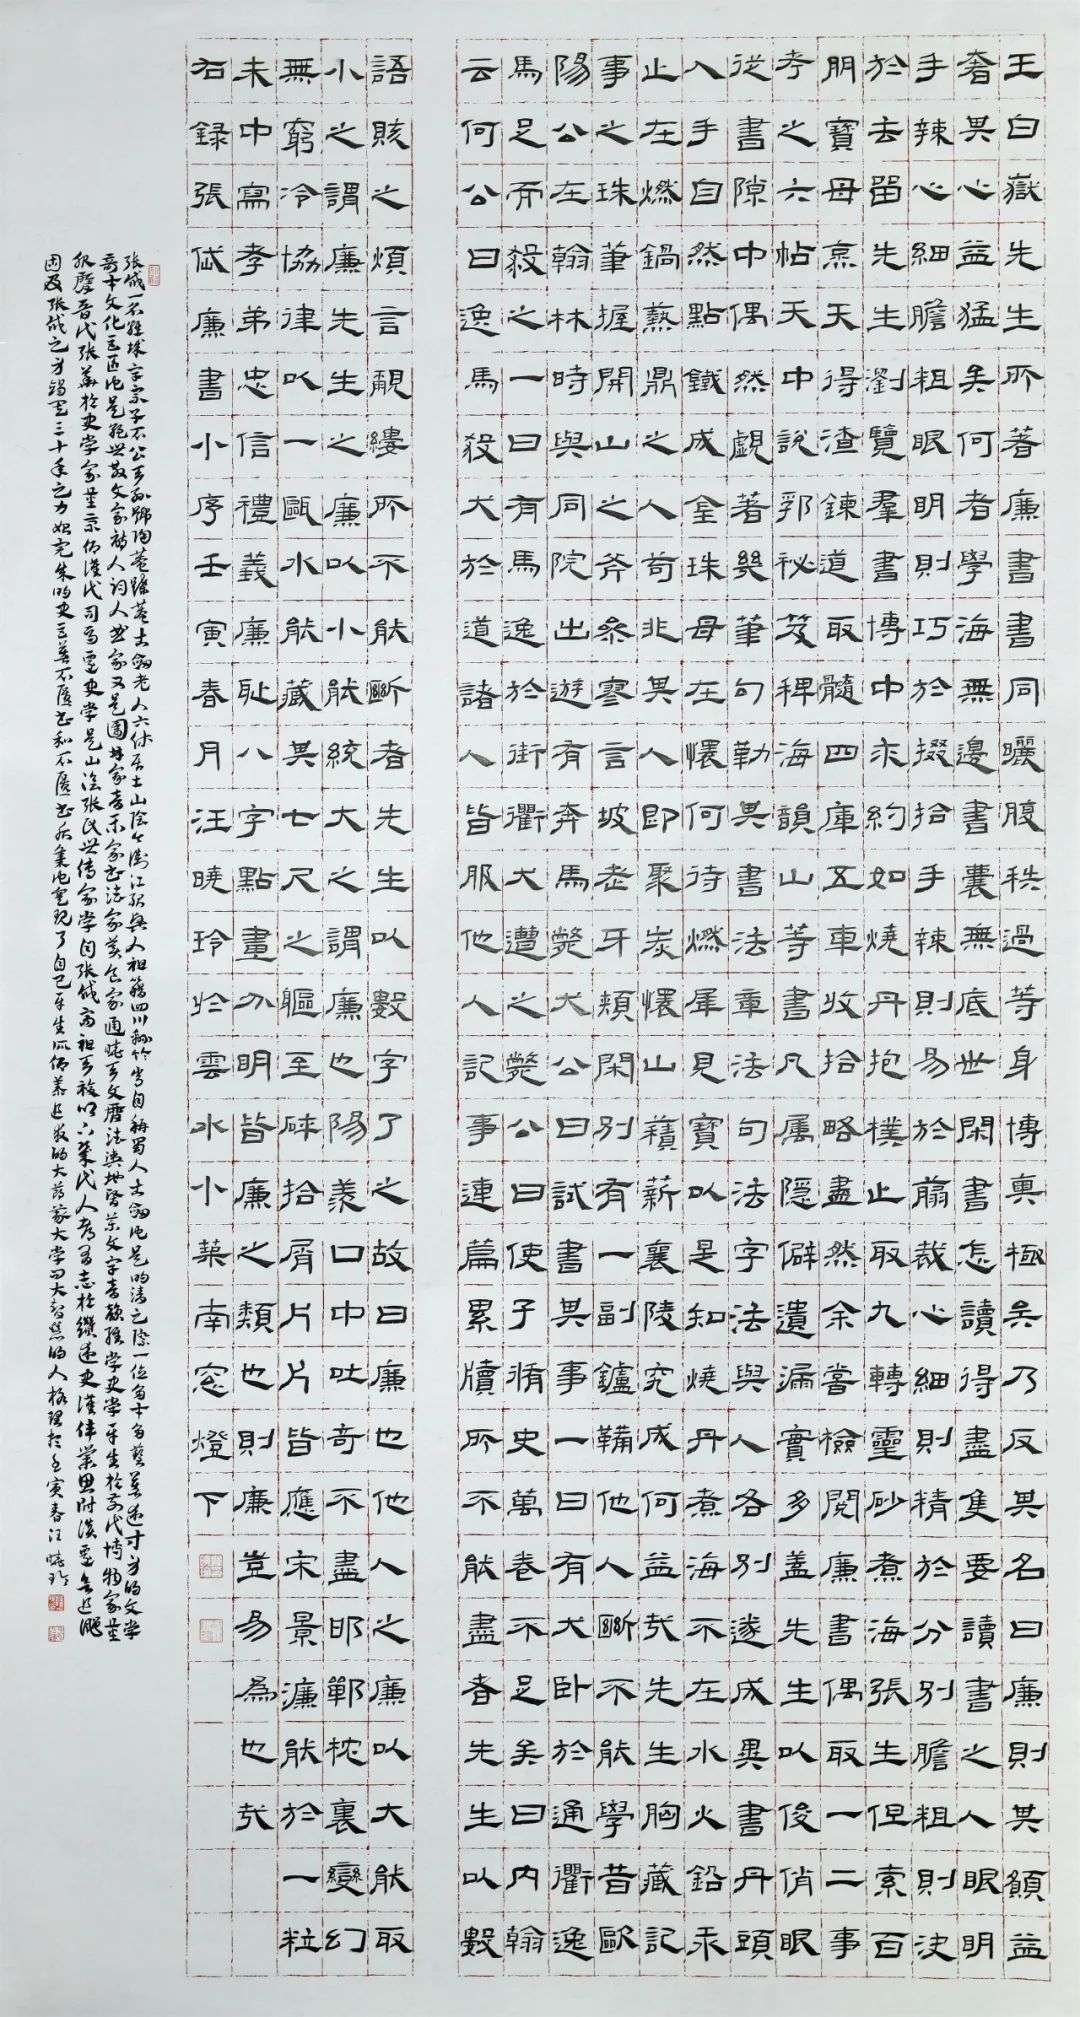 王白嶽先生所著廉書書同曬腹秩過等身博真極矣乃反其名曰廉則其顧益
奢其心益猛矣何者學海無邊書囊無底世閑書怎讀得盡隻要讀書之人眼明
手辣心細膽粗眼明則巧於掇拾手辣則易於剪裁心細則精於分別膽粗則決
於去留先生劉覽羣書博中求約如燒丹抱樸止取九轉靈砂煮海張生但索百
朋寶母烹天得渣鍊道取髓四庫五車收拾略盡然余嘗檢閱廉書偶取一二事
考之六帖天中說郛秘笈稗海韻山等書凡属隱僻遺漏實多盖先生以後俏眼
從書隙中偶然覷著幾筆句勒其書法章法句法字法與人各別遂成異書丹頭
入手自然點鐵成金珠母在懷何待燃犀見寶以是知燒丹煮海不在水火鉛汞
止在燃鍋爇鼎之人苟非其人即聚炭懷山藉薪襄陵究成何益哉先生胸藏記
事之珠筆握開山之斧參寥言坡老牙頰閑別有一副鑪鞴他人斷不能學昔歐
陽公在翰林時與同院出遊有奔馬斃犬公曰試書其事一曰有犬卧於通衢逸
馬足而殺之一曰有馬逸於街衢犬遭之斃公曰使子脩史萬卷不足矣曰内翰
云何公曰逸馬殺犬於道諸人皆服他人記事連篇累牘所不能盡者先生以數
語賅之煩言覶縷所不能斷者先生以數字了之故曰廉也他人之廉以大能取
小之謂廉先生之廉以小能統大之謂廉也陽羨口中吐奇不盡邯鄲枕裏變幻
無窮冷協律以一甌水能藏其七尺之軀至碎拾屑片片皆應宋景濂能於一粒
未中寫孝弟忠信禮義廉耻八字點畫分明皆廉之類也則廉豈易為也哉
右錄張岱廉書小序壬寅春月汪曉玲於雲水小築南窓燈下
張岱一名維城字宗子號陶菴蝶菴古劍老人六休居士山陰今浙江紹興人祖籍四川綿竹常自稱蜀人古劍他是明清之際一位多才多藝著述等身的文學
奇才文化巨匠他是絕世散文家詩人詞人曲家又是園林家音樂家書法家美食家通曉天文曆法輿地醫藥文字音韻經學史學
晉代張華於史學家漢代司馬遷史學是山陰張氏世傳家學自張岱高祖天複以六葉代人有志於繼述史漢偉業
因及張岱之身竭盡三十年之力始完成明史自己平生大智慧的人格壬寅春汪曉玲